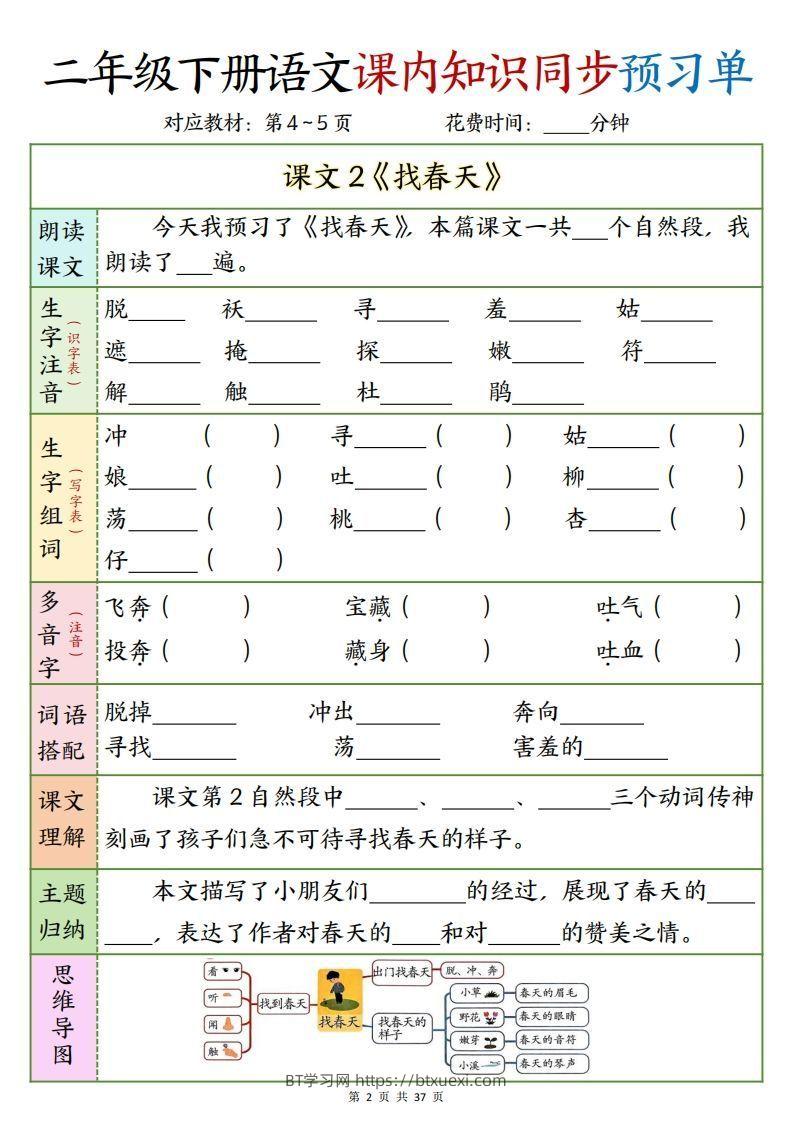 二年级下册语文课内知识同步预习单
对应教材：第4~5页 花费时间：____分钟
课文2《找春天》
朗读课文
今天我预习了《找春天》，本篇课文一共___个自然段，我
朗读了___遍。
生字注音（识字表）
脱_____ 袄______ 寻______ 羞______ 姑______
遮______ 掩______ 探______ 嫩______ 符______
解______ 触______ 杜______ 鹃______
生字组词（写字表）
冲 （ ） 寻______（ ） 姑______（ ）
娘______（ ） 吐______（ ） 柳______（ ）
荡______（ ） 桃______（ ） 杏______（ ）
仔______（ ）
多音字（注音）
飞奔（ ） 宝藏（ ） 吐气（ ）
投奔（ ） 藏身（ ） 吐血（ ）
词语搭配
脱掉_______ 冲出_______ 奔向_______
寻找_______ 荡_______ 害羞的_______
课文理解
课文第2自然段中______、______、______三个动词传神
刻画了孩子们急不可待寻找春天的样子。
主题归纳
本文描写了小朋友们________的经过，展现了春天的____
____，表达了作者对春天的____和对______的赞美之情。
思维导图
看
听
闻
触
找到春天
找春天
出门找春天
脱、冲、奔
找春天的样子
小草 春天的眉毛
野花 春天的眼睛
嫩芽 春天的音符
小溪 春天的琴声
BT学习网 https://btxuexi.com
第 2 页 共 37 页